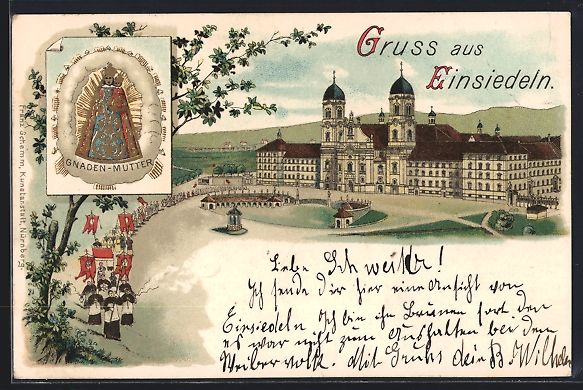 Gruss aus
Einsiedeln.
GNADEN-MUTTER
Franz Schemm, Kunstanstalt, Nürnberg
Lebe
Ich sende dir hier eine Ansicht von
Einsiedeln Ich bin in Brunnen fort, den
es war nicht zum Aushalten bei dem
Weibervolk. Mit Gruss dein B. Wilhelm